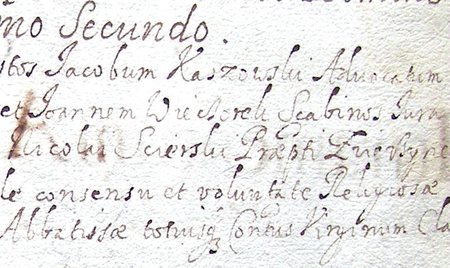 mo Secundo.
stos Jacobum Kaszowski Advocatum
et Joannem Wiechorek Scabinos Jura
Nicolai Scierski Præpti
le consensu et voluntate Religiosæ
Abbatissæ totiusq Contus Virginum Cla